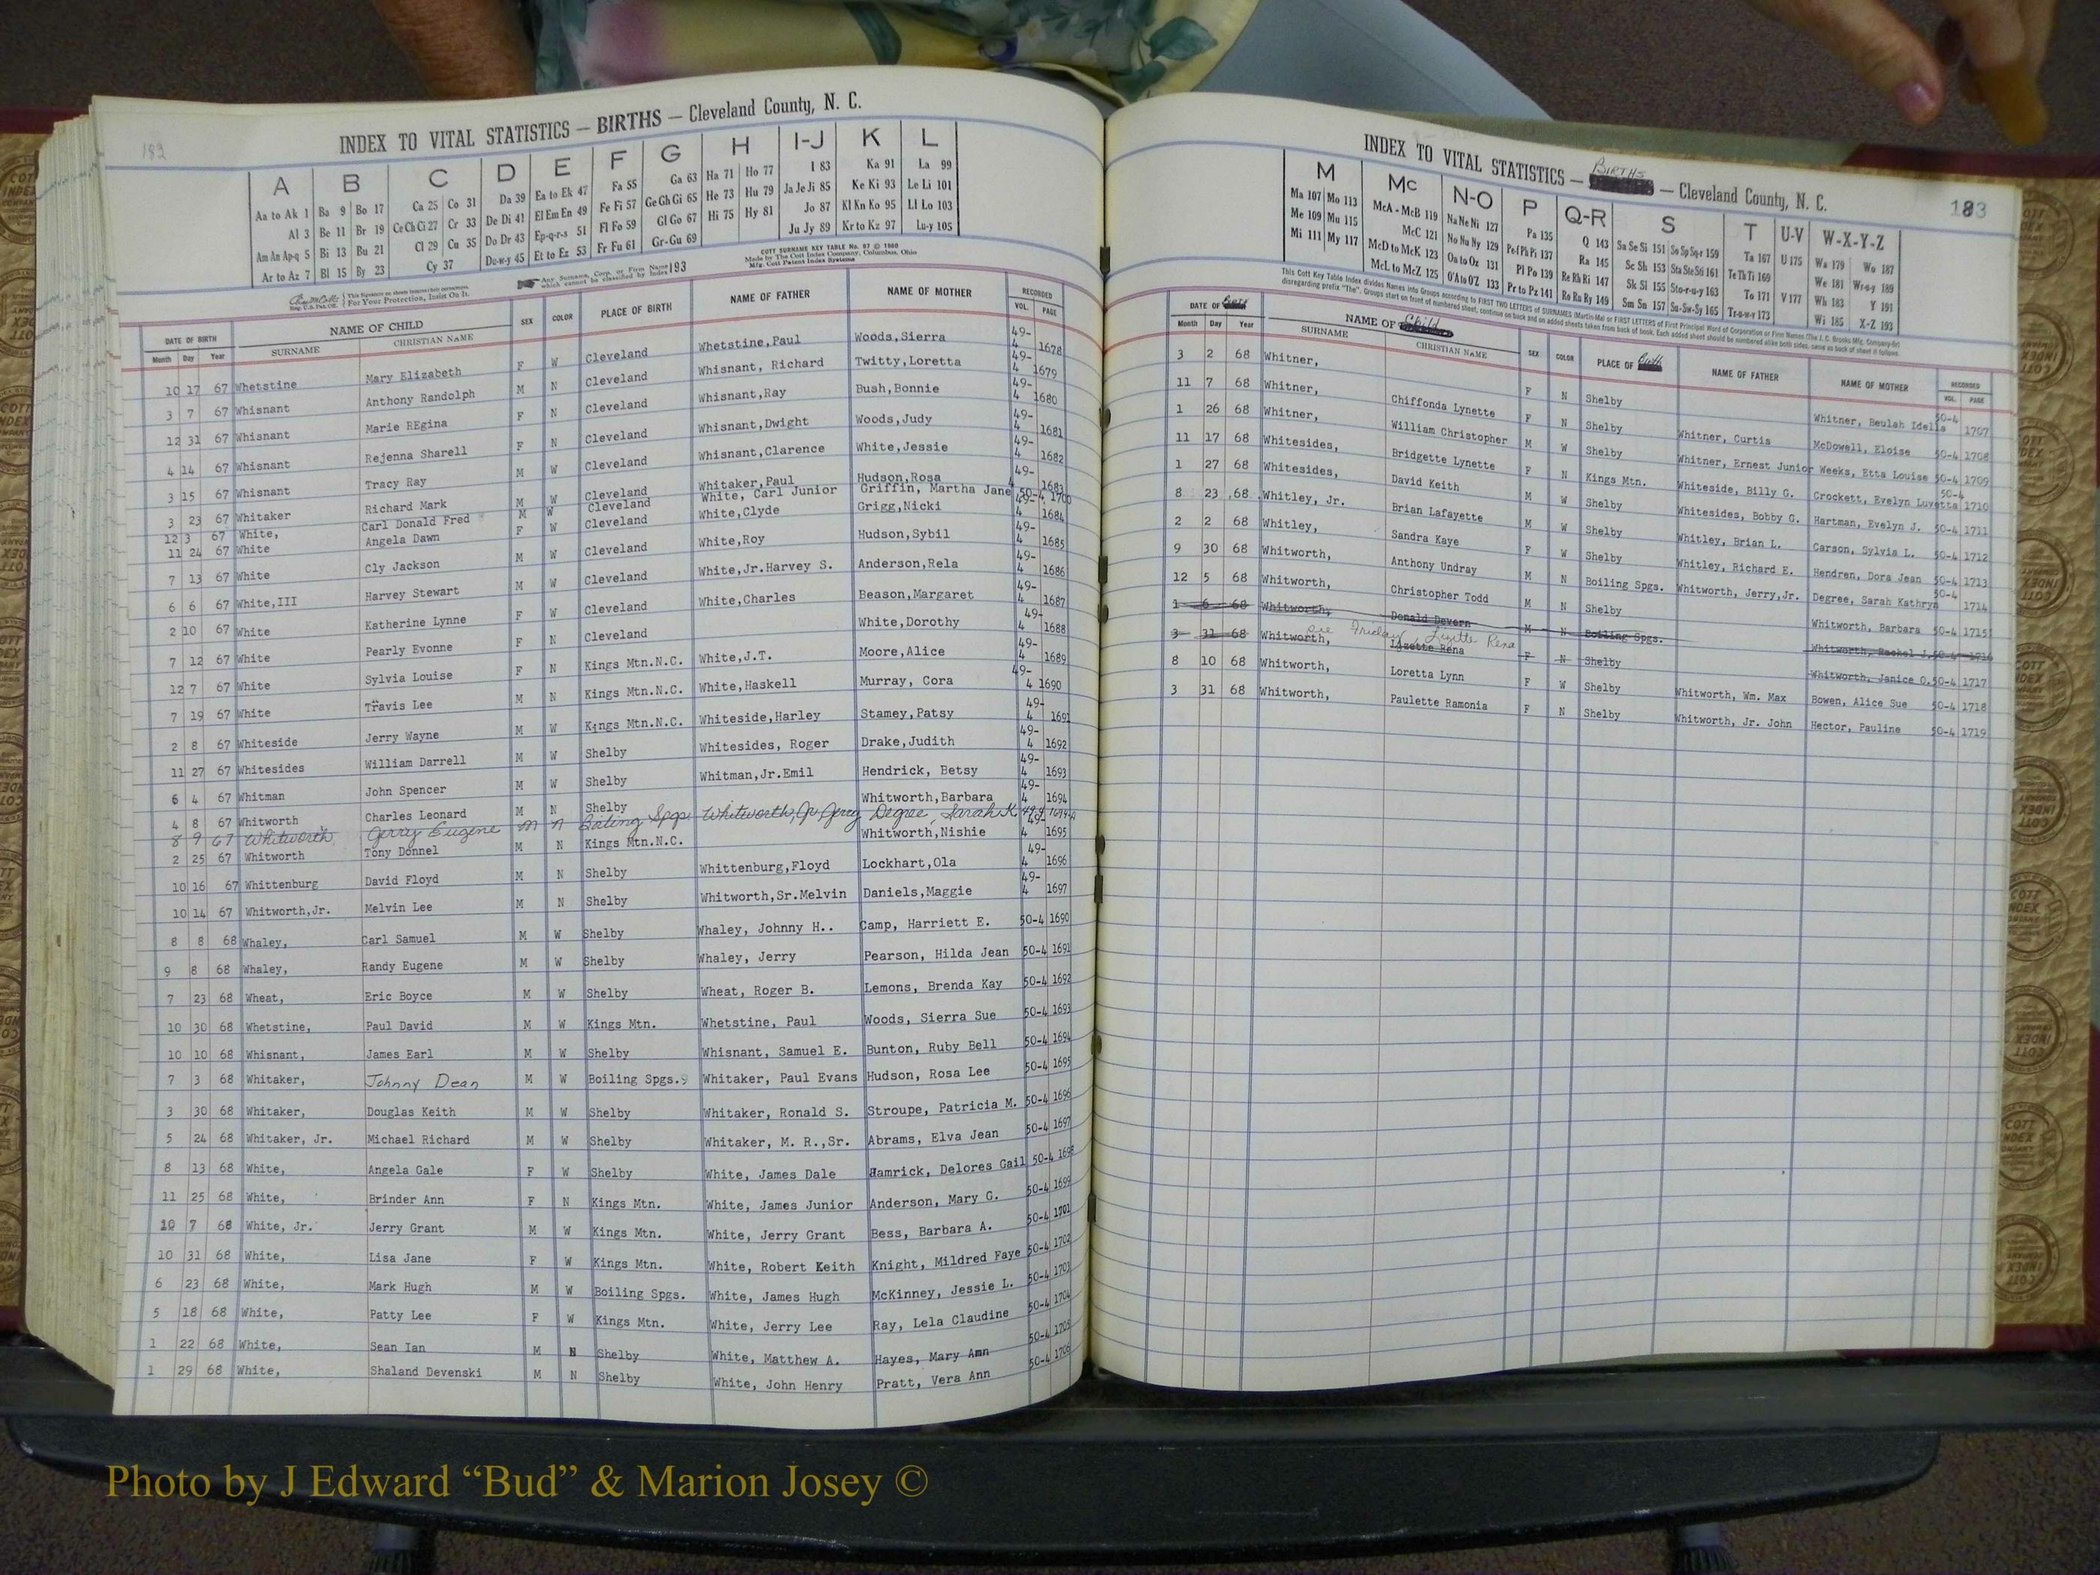 182
INDEX TO VITAL STATISTICS — BIRTHS — Cleveland County, N. C.
A B C D E F G H I-J K L
Aa to Ak 1 Ba 9 Bo 17 Ca 25 Co 31 Da 39 Ea to Ek 47 Fa 55 Ga 63 Ha 71 Ho 77 I 83 Ka 91 La 99
Al 3 Be 11 Br 19 Ce Ch Ci 27 Cr 33 De Di 41 El Em En 49 Fe Fi 57 Ge Gh Gi 65 He 73 Hu 79 Ja Je Ji 85 Ke Ki 93 Le Li 101
Am An Ap-q 5 Bi 13 Bu 21 Cl 29 Cu 35 Do Dr 43 Ep-q-r-s 51 Fl Fo 59 Gl Go 67 Hi 75 Hy 81 Jo 87 Kl Kn Ko 95 Ll Lo 103
Ar to Az 7 Bl 15 By 23 Cy 37 Du-w-y 45 Et to Ez 53 Fr Fu 61 Gr-Gu 69 Ju Jy 89 Kr to Kz 97 Lu-y 105
COTT SURNAME KEY TABLE No. 87 © 1960
Made by The Cott Index Company, Columbus, Ohio
Mfg. Cott Patent Index Systems
For Your Protection, Insist On It.
Any Surname, Corp. or Firm Name which cannot be classified by Index 193
DATE OF BIRTH NAME OF CHILD SEX COLOR PLACE OF BIRTH NAME OF FATHER NAME OF MOTHER RECORDED
Month Day Year SURNAME CHRISTIAN NAME VOL. PAGE
10 17 67 Whetstine Mary Elizabeth F W Cleveland Whetstine,Paul Woods,Sierra 49-4 1678
3 7 67 Whisnant Anthony Randolph M N Cleveland Whisnant, Richard Twitty,Loretta 49-4 1679
12 31 67 Whisnant Marie REgina F N Cleveland Whisnant,Ray Bush,Bonnie 49-4 1680
4 14 67 Whisnant Rejenna Sharell F N Cleveland Whisnant,Dwight Woods,Judy 49-4 1681
3 15 67 Whisnant Tracy Ray M W Cleveland Whisnant,Clarence White,Jessie 49-4 1682
3 23 67 Whitaker Richard Mark M W Cleveland Whitaker,Paul Hudson,Rosa 49-4 1683
12 3 67 White, Carl Donald Fred M W Cleveland White, Carl Junior Griffin, Martha Jane 50-4 1700
11 24 67 White Angela Dawn F W Cleveland White,Clyde Grigg,Nicki 49-4 1684
7 13 67 White Cly Jackson M W Cleveland White,Roy Hudson,Sybil 49-4 1685
6 6 67 White,III Harvey Stewart M W Cleveland White,Jr.Harvey S. Anderson,Rela 49-4 1686
2 10 67 White Katherine Lynne F W Cleveland White,Charles Beason,Margaret 49-4 1687
7 12 67 White Pearly Evonne F N Cleveland White,Dorothy 49-4 1688
12 7 67 White Sylvia Louise F N Kings Mtn.N.C. White,J.T. Moore,Alice 49-4 1689
7 19 67 White Travis Lee M N Kings Mtn.N.C. White,Haskell Murray, Cora 49-4 1690
2 8 67 Whiteside Jerry Wayne M W Kings Mtn.N.C. Whiteside,Harley Stamey,Patsy 49-4 1691
11 27 67 Whitesides William Darrell M W Shelby Whitesides, Roger Drake,Judith 49-4 1692
6 4 67 Whitman John Spencer M W Shelby Whitman,Jr.Emil Hendrick, Betsy 49-4 1693
4 8 67 Whitworth Charles Leonard M N Shelby Whitworth,Barbara 49-4 1694
8 9 67 Whitworth Jerry Eugene M N Boiling Spgs Whitworth, Jr. Jerry Degree, Sarah K. 49-4
2 25 67 Whitworth Tony Donnel M N Kings Mtn.N.C. Whitworth,Nishie 49-4 1695
10 16 67 Whittenburg David Floyd M N Shelby Whittenburg,Floyd Lockhart,Ola 49-4 1696
10 14 67 Whitworth,Jr. Melvin Lee M N Shelby Whitworth,Sr.Melvin Daniels,Maggie 49-4 1697
8 8 68 Whaley, Carl Samuel M W Shelby Whaley, Johnny H.. Camp, Harriett E. 50-4 1690
9 8 68 Whaley, Randy Eugene M W Shelby Whaley, Jerry Pearson, Hilda Jean 50-4 1691
7 23 68 Wheat, Eric Boyce M W Shelby Wheat, Roger B. Lemons, Brenda Kay 50-4 1692
10 30 68 Whetstine, Paul David M W Kings Mtn. Whetstine, Paul Woods, Sierra Sue 50-4 1693
10 10 68 Whisnant, James Earl M W Shelby Whisnant, Samuel E. Bunton, Ruby Bell 50-4 1694
7 3 68 Whitaker, Johnny Dean M W Boiling Spgs. Whitaker, Paul Evans Hudson, Rosa Lee 50-4 1695
3 30 68 Whitaker, Douglas Keith M W Shelby Whitaker, Ronald S. Stroupe, Patricia M. 50-4 1696
5 24 68 Whitaker, Jr. Michael Richard M W Shelby Whitaker, M. R.,Sr. Abrams, Elva Jean 50-4 1697
8 13 68 White, Angela Gale F W Shelby White, James Dale Hamrick, Delores Gail 50-4 1698
11 25 68 White, Brinder Ann F N Kings Mtn. White, James Junior Anderson, Mary G. 50-4 1699
10 7 68 White, Jr. Jerry Grant M W Kings Mtn. White, Jerry Grant Bess, Barbara A. 50-4 1701
10 31 68 White, Lisa Jane F W Kings Mtn. White, Robert Keith Knight, Mildred Faye 50-4 1702
6 23 68 White, Mark Hugh M W Boiling Spgs. White, James Hugh McKinney, Jessie L. 50-4 1703
5 18 68 White, Patty Lee F W Kings Mtn. White, Jerry Lee Ray, Lela Claudine 50-4 1704
1 22 68 White, Sean Ian M N Shelby White, Matthew A. Hayes, Mary Ann 50-4 1705
1 29 68 White, Shaland Devenski M N Shelby White, John Henry Pratt, Vera Ann 50-4 1706
INDEX TO VITAL STATISTICS — BIRTHS — Cleveland County, N. C.
183
M Mc N-O P Q-R S T U-V W-X-Y-Z
Ma 107 Mo 113 McA - McB 119 Na Ne Ni 127 Pa 135 Q 143 Sa Se Si 151 So Sp Sq-r 159 Ta 167 U 175 Wa 179 Wo 187
Me 109 Mu 115 McC 121 No Nu Ny 129 Pe-f Ph Pi 137 Ra 145 Sc Sh 153 Sta Ste Sti 161 Te Th Ti 169 We 181 Wr-u-y 189
Mi 111 My 117 McD to McK 123 Oa to Oz 131 Pl Po 139 Re Rh Ri 147 Sk Sl 155 Sto-r-u-y 163 To 171 V 177 Wh 183 Y 191
McL to McZ 125 O'A to O'Z 133 Pr to Pz 141 Ro Ru Ry 149 Sm Sn 157 Su-Sw-Sy 165 Tr-u-w-y 173 Wi 185 X-Z 193
This Cott Key Table Index divides Names into Groups according to FIRST TWO LETTERS of SURNAMES (Martin-Ma) or FIRST LETTERS of First Principal Word of Corporation or Firm Names
disregarding prefix "The". Groups start on front of numbered sheet, continue on back and on added sheets taken from back of book. Each added sheet should be numbered alike both sides, same as back of sheet it follows.
DATE OF Birth NAME OF Child SEX COLOR PLACE OF Birth NAME OF FATHER NAME OF MOTHER RECORDED
Month Day Year SURNAME CHRISTIAN NAME VOL. PAGE
3 2 68 Whitner, Chiffonda Lynette F N Shelby Whitner, Beulah Idella 50-4 1707
11 7 68 Whitner, William Christopher F N Shelby Whitner, Curtis McDowell, Eloise 50-4 1708
1 26 68 Whitner, Bridgette Lynette M W Shelby Whitner, Ernest Junior Weeks, Etta Louise 50-4 1709
11 17 68 Whitesides, David Keith F N Kings Mtn. Whiteside, Billy G. Crockett, Evelyn Luvetta 50-4 1710
1 27 68 Whitesides, Brian Lafayette M W Shelby Whitesides, Bobby G. Hartman, Evelyn J. 50-4 1711
8 23 68 Whitley, Jr. Sandra Kaye M W Shelby Whitley, Brian L. Carson, Sylvia L. 50-4 1712
2 2 68 Whitley, Anthony Undray F W Shelby Whitley, Richard E. Hendren, Dora Jean 50-4 1713
9 30 68 Whitworth, Christopher Todd M N Boiling Spgs. Whitworth, Jerry,Jr. Degree, Sarah Kathryn 50-4 1714
12 5 68 Whitworth, Donald Devern M N Shelby Whitworth, Barbara 50-4 1715
1 6 68 Whitworth, M N Boiling Spgs. Whitworth, Rachel J. 50-4 1716
see Friday, Lizette Rena
3 31 68 Whitworth, Lizette Rena F N Shelby Whitworth, Janice O. 50-4 1717
8 10 68 Whitworth, Loretta Lynn F W Shelby Whitworth, Wm. Max Bowen, Alice Sue 50-4 1718
3 31 68 Whitworth, Paulette Ramonia F N Shelby Whitworth, Jr. John Hector, Pauline 50-4 1719
Photo by J Edward “Bud” & Marion Josey ©